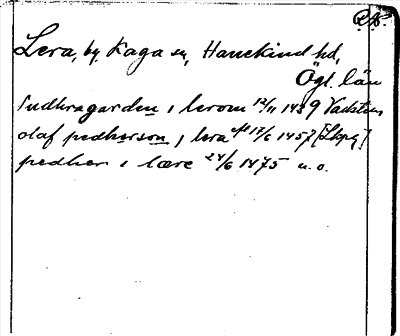 Lera, by, Kaga sn, Hanekind hd,
Ögl. län
Sudhragarden i lerom 12/11 1439 Vadstena
olaf pedherson i lera 17/6 1457 [Lkpg]
pedher i lære 24/6 1475 u.o.